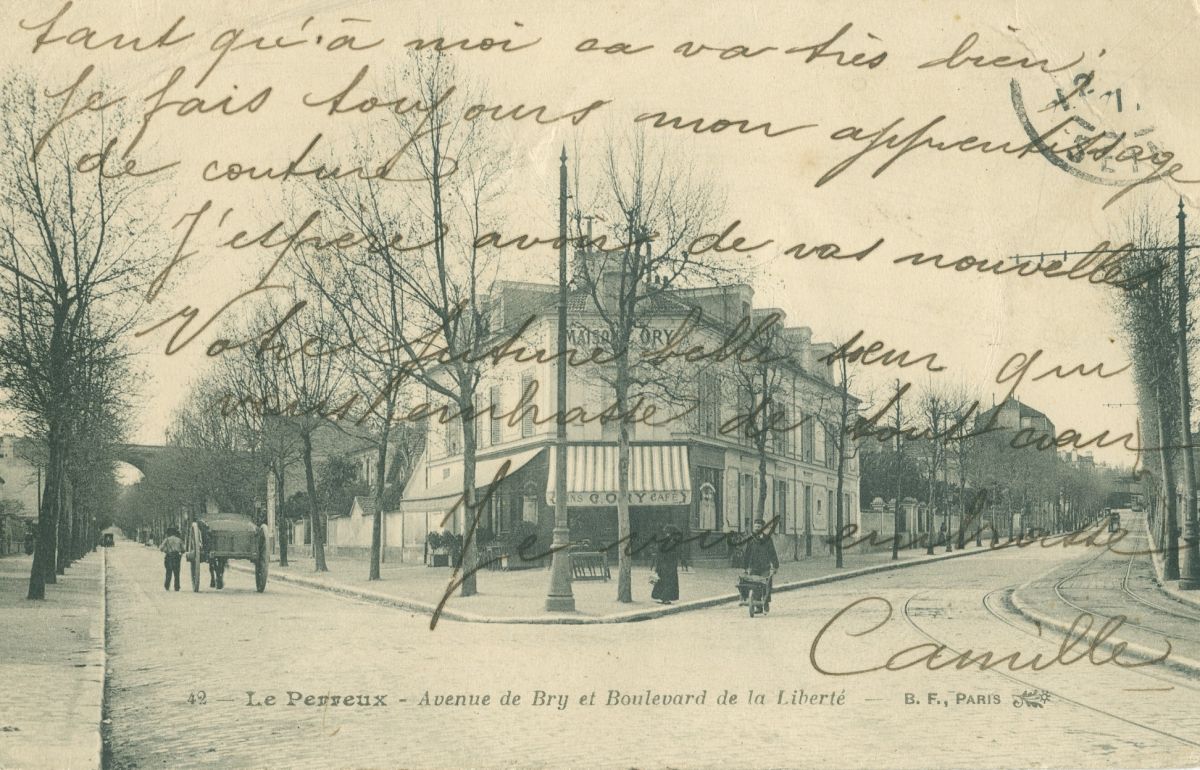 tant qu'à moi ca va très bien
Je fais toujours mon apprentissage
de couture
J'espère avoir de vos nouvelles
Votre future belle sœur qui
vous embrasse de tout cœur
Je vous embrasse
Camille
MAISON GORY
VINS GORY CAFÉ
42 — Le Perreux - Avenue de Bry et Boulevard de la Liberté — B. F., PARIS